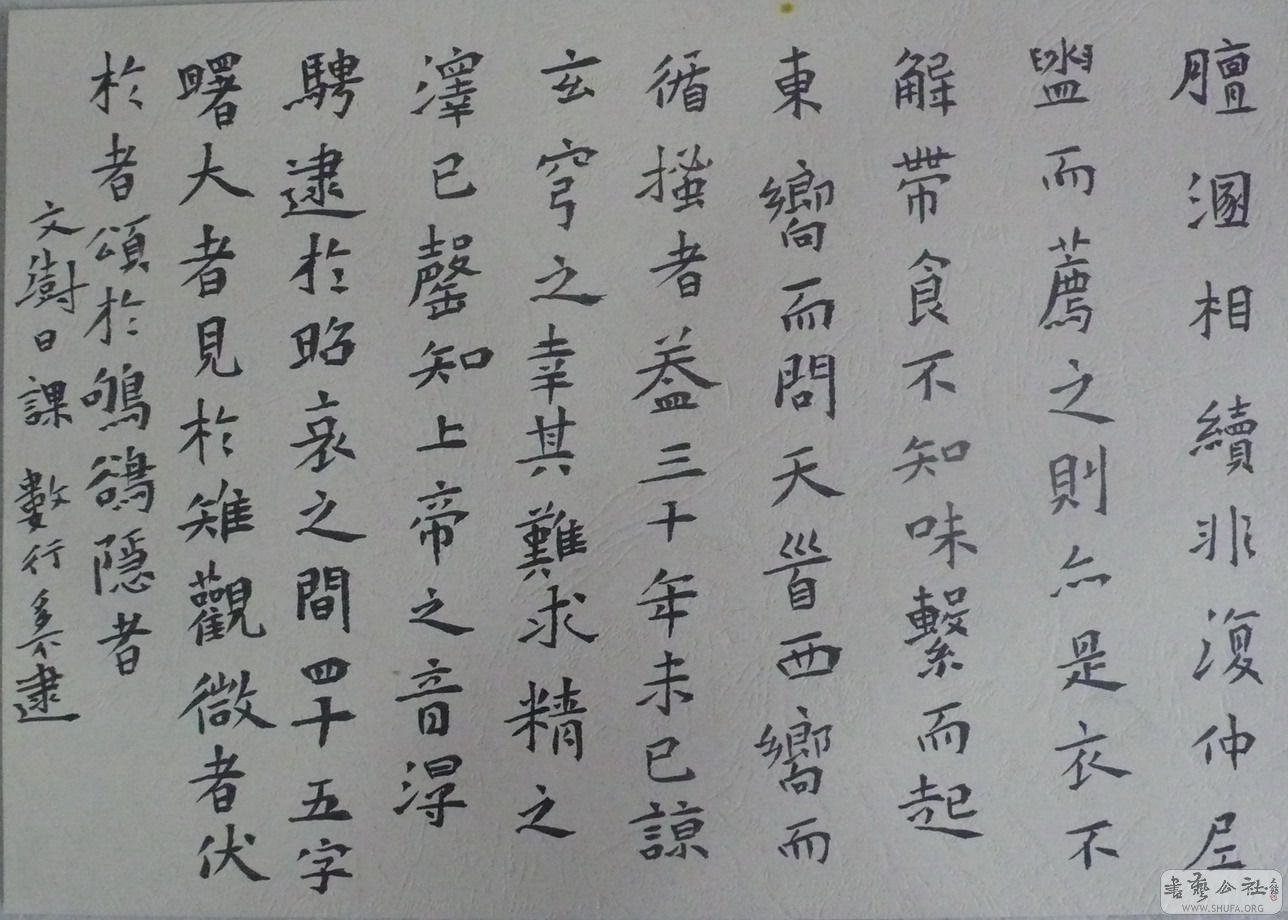 膻溷相續非復仲尼
盥而薦之則亦是衣不
解帶食不知味繫而起
東嚮而問天首西嚮而
循搔者蓋三十年未已諒
玄穹之幸其難求精之
澤已罄知上帝之音淂
騁逮於昭哀之間四十五字
曙大者見於雉觀微者伏
於者頌於鳴鵒隱者
文澍日課 數行逮
書藝公社
WWW.SHUFA.ORG